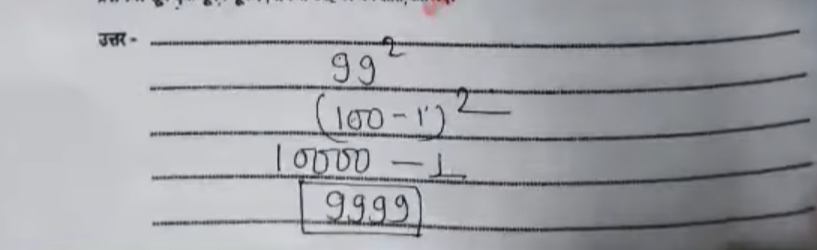 उत्तर -
99²
(100 - 1)²
10000 - 1
9999